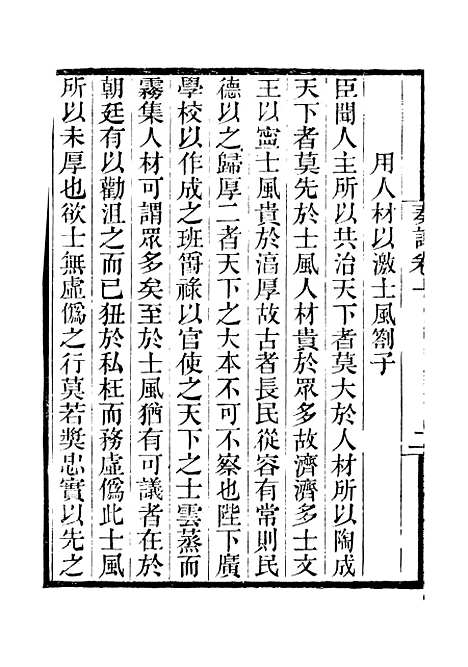 奏議卷一
二
用人材以激士風劄子
臣聞人主所以共治天下者莫大於人材所以陶成
天下者莫先於士風人材貴於眾多故濟濟多士文
王以寧士風貴於湻厚故古者長民從容有常則民
德以之歸厚二者天下之大本不可不察也陛下廣
學校以作成之班爵祿以官使之天下之士雲蒸而
霧集人材可謂眾多矣至於士風猶有可議者在於
朝廷有以勸沮之而已狃於私枉而務虛僞此士風
所以未厚也欲士無虛僞之行莫若奬忠實以先之